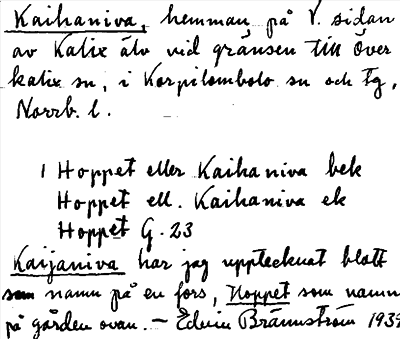 Kaihaniva, hemman på V. sidan
av Kalix älv vid gränsen till Över
kalix sn, i Korpilombolo sn och tg,
Norrb. l.
1 Hoppet eller Kaihaniva bek
Hoppet ell. Kaihaniva ek
Hoppet G. 23
Kaijaniva har jag upptecknat blott
som namn på en fors, Hoppet som namn
på gården ovan. – Edvin Brännström 1939